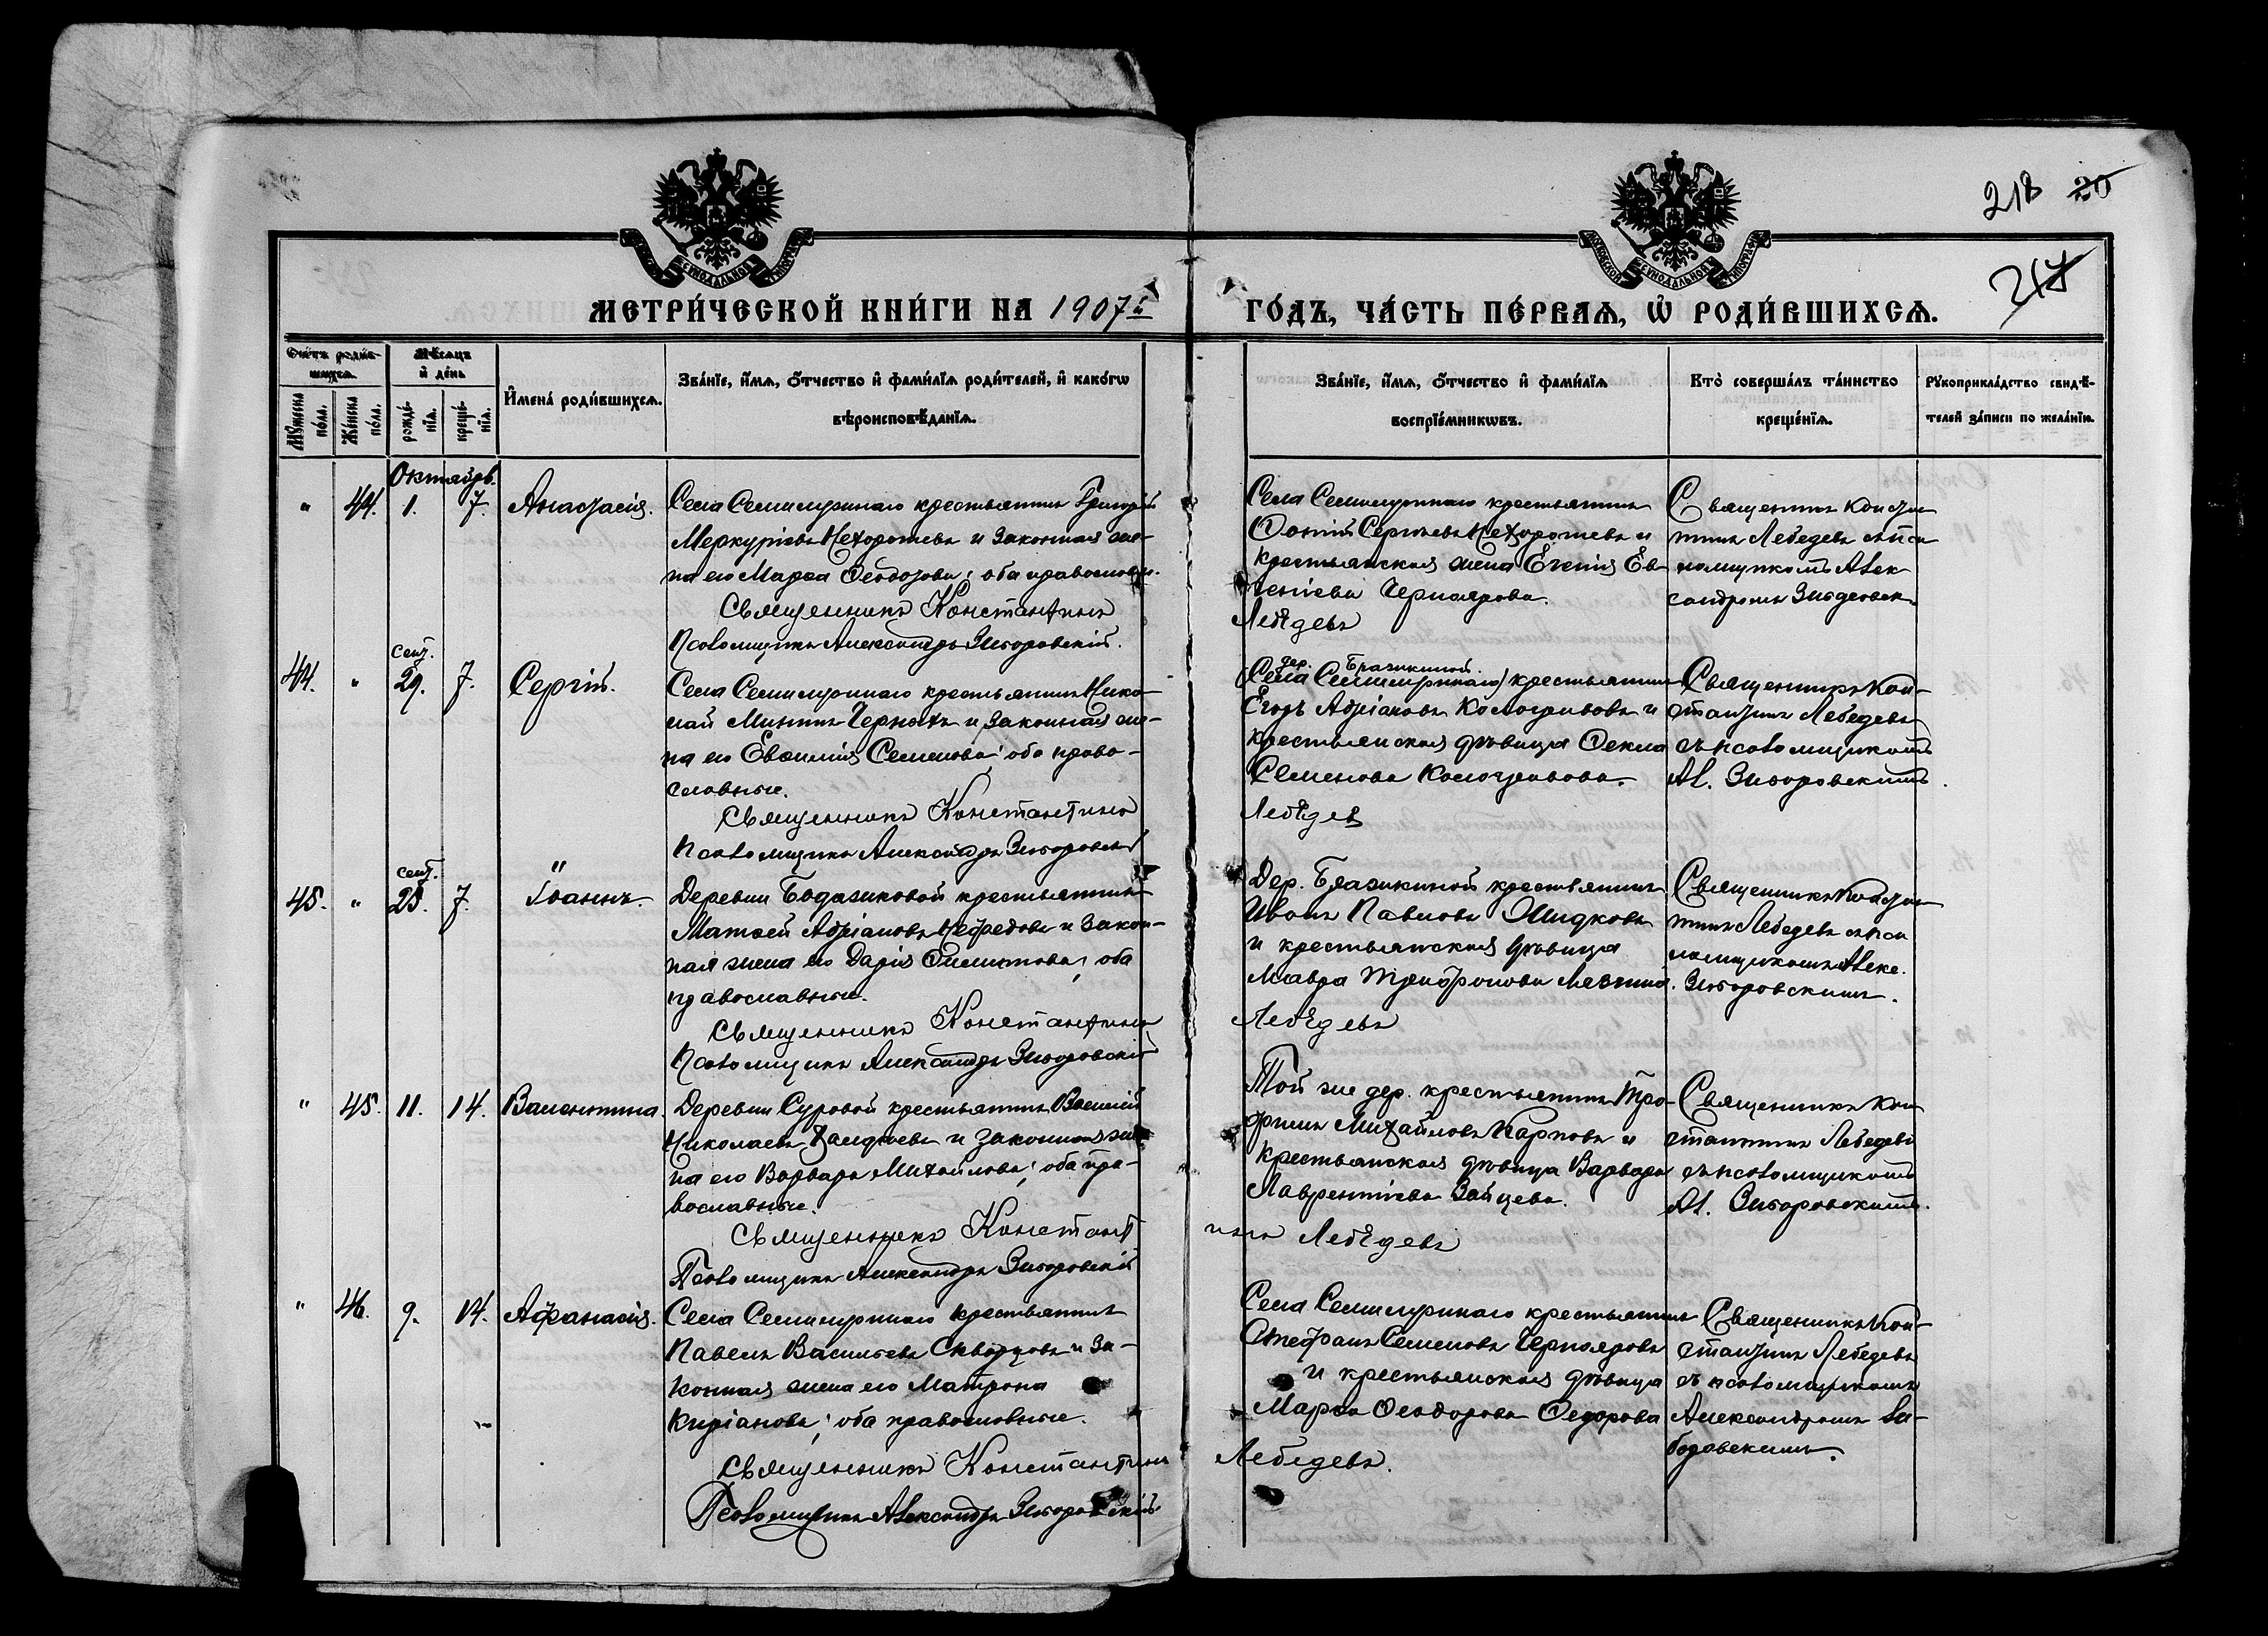 218 20
217
МЕТРИ́ЧЕСКОЙ КНИ́ГИ НА 1907й ГО́ДЪ, ЧА́СТЬ ПЕ́РВАѦ, Ѡ҆ РОДИ́ВШИХСѦ.
Сче́тъ роди́в-
шихсѧ.
Мѣ́сѧцъ
и҆ де́нь
Мꙋ́жеска
по́ла.
Же́нска
по́ла.
рожде́-
нїѧ.
креще́-
нїѧ.
И҆мена̀ роди́вшихсѧ.
Зва́нїе, и҆́мѧ, ѻ҆́тчество и҆ фами́лїѧ роди́телей, и҆ како́гѡ
вѣроисповѣ́данїѧ.
Зва́нїе, и҆́мѧ, ѻ҆́тчество и҆ фами́лїѧ
воспрїе́мникѡвъ.
Кто̀ соверша́лъ та́инство
креще́нїѧ.
Рꙋкоприкла́дство свидѣ́-
телей за́писи по жела́нїю.
Октябрь.
" 44. 1. 7. Анастасія.
Села Семилучнаго крестьянинъ Григорій
Меркуріевъ Нехорошевъ и законная же-
на его Марѳа Ѳеодорова; оба православн.
Священникъ Константинъ Лебѣдевъ
Псаломщикъ Александръ Зиборовскій.
Села Семилучнаго крестьянинъ
Сергѣевъ Нехорошевъ и
крестьянская жена Ев-
геніева Черноярова.
Священникъ Констан-
тинъ Лебедевъ съ пса-
ломщикомъ Алек-
сандромъ
44. " сент. 29. 7. Сергій.
Села Семилучнаго крестьянинъ Нико-
лай Черныхъ и законная же-
на его Евѳимія Семенова; оба право-
славные.
Священникъ Константинъ Лебѣдев
Псаломщикъ Александръ Зиборовскій
дер.
(Села Семилучнаго) крестьянинъ
Егоръ Адріановъ и
крестьянская дѣвица Ѳекла
Семенова
Священникъ Кон-
стантинъ Лебедевъ
съ псаломщикомъ
Ал. Зиборовскимъ.
45. " сент. 25. 7. Іоаннъ.
Деревни крестьянинъ
Матѳей Адріановъ и закон-
ная жена его Дарія оба
православные.
Священникъ Константинъ Лебѣдевъ
Псаломщикъ Александръ Зиборовскій
Дер. крестьянинъ
Иванъ Павловъ Жидковъ
и крестьянская дѣвица
Мавра Трифонова
Священникъ Констан-
тинъ Лебедевъ съ пса-
ломщикомъ Алекс.
Зиборовскимъ.
" 45. 11. 14. Валентина.
Деревни Суровой крестьянинъ Василій
Николаевъ и законная же-
на его Варвара Михайлова; оба пра-
вославные.
Священникъ Константинъ Лебѣдевъ
Псаломщикъ Александръ Зиборовскій
Той же дер. крестьянинъ Тро-
фимъ Михайловъ Карповъ и
крестьянская дѣвица Варвара
Лаврентіева Зайцева.
Священникъ Кон-
стантинъ Лебедевъ
съ псаломщикомъ
Ал. Зиборовскимъ.
" 46. 9. 14. Афанасія.
Села Семилучнаго крестьянинъ
Павелъ Васильевъ Скворцовъ и за-
конная жена его Матрона
Киріанова; оба православные.
Священникъ Константинъ Лебедевъ.
Псаломщикъ Александръ Зиборовскій
Села Семилучнаго крестьянинъ
Стефанъ Семеновъ Чернояровъ
и крестьянская дѣвица
Марѳа Ѳеодорова Ѳедорова
Священникъ Кон-
стантинъ Лебедевъ
съ псаломщикомъ
Александромъ Зи-
боровскимъ.